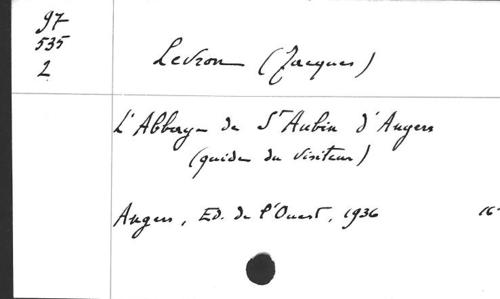 97
535
2
Levron (Jacques)
L'Abbaye de St Aubin d'Angers
(guide du visiteur)
Angers, Ed. de l'Ouest, 1936 16-